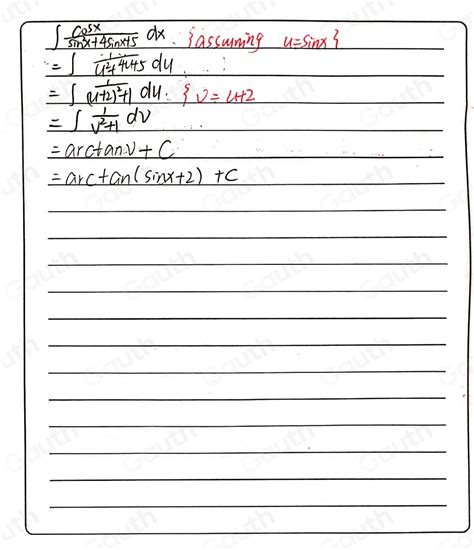 ∫ cosx/(sin²x+4sinx+5) dx. {assuming u=sinx}
= ∫ 1/(u²+4u+5) du
= ∫ 1/((u+2)²+1) du. {v=u+2
= ∫ 1/(v²+1) dv
= arctanv + C
= arctan(sinx+2) +C